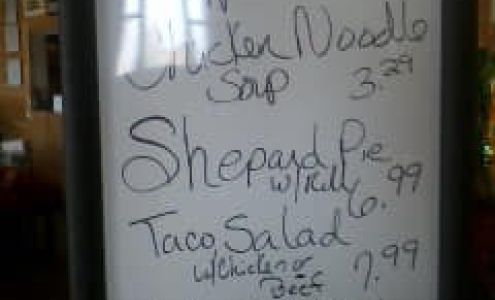 Chicken Noodle
Soup 3.29
Shepard Pie
w/Roll 6.99
Taco Salad
w/Chicken or
Beef 7.99